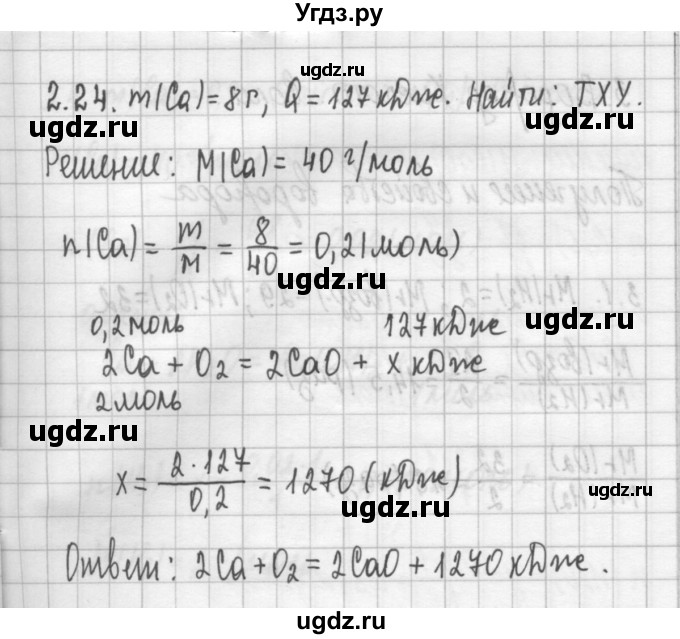 Угдз.ру
ugdz.ru
2.24. m(Ca)=8г, Q=127кДж. Найти: ТХУ.
ugdz.ru ugdz.ru
Решение: M(Ca)=40 г/моль
n(Ca)= m/M = 8/40 = 0,2(моль)
ugdz.ru
0,2моль 127кДж
ugdz.ru
2Ca + O2 = 2CaO + x кДж
2моль
ugdz.ru ugdz.ru
x= 2·127/0,2 = 1270 (кДж)
ugdz.ru
Ответ: 2Ca+O2=2CaO+1270кДж.
ugdz.ru ugdz.ru
ugdz.ru